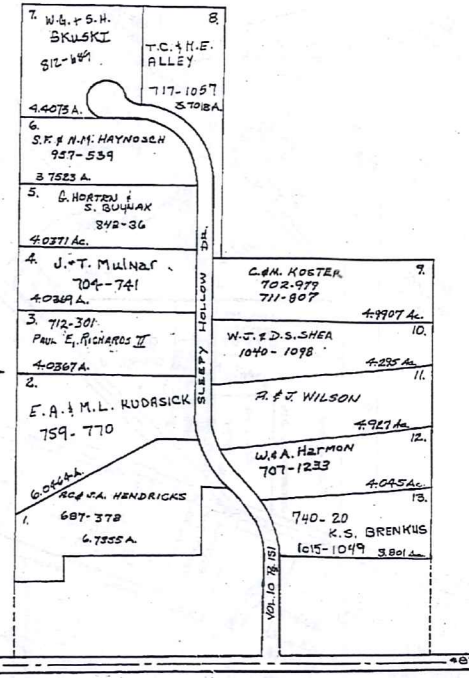 7. W.G. & S.H.
SKUSKI
812-689
4.4073 A.
8.
T.C. & H.E.
ALLEY
717-1057
3.7018 A.
6.
S.F. & N.M. HAYNOSCH
957-539
3.7523 A.
5. G. HORTEN &
S. BULYNAK
842-36
4.0371 Ac.
4. J. & T. Mulnar
704-741
4.0369 A.
3. 712-301
PAUL E. RICHARDS II
4.0367 A.
2.
E. A. & M.L. KUDASICK
759-770
6.0464 A.
1.
R.C. & J.A. HENDRICKS
687-378
6.7355 A.
SLEEPY HOLLOW DR.
9.
C. & M. KOSTER
702-979
711-807
4.9907 Ac.
10.
W.J. & D.S. SHEA
1040-1098
4.295 Ac.
11.
A. & J. WILSON
4.927 Ac.
12.
W. & A. HARMON
707-1233
4.045 Ac.
13.
740-20
K.S. BRENKUS
1015-1049
3.801 Ac.
VOL. 10 Pg. 151